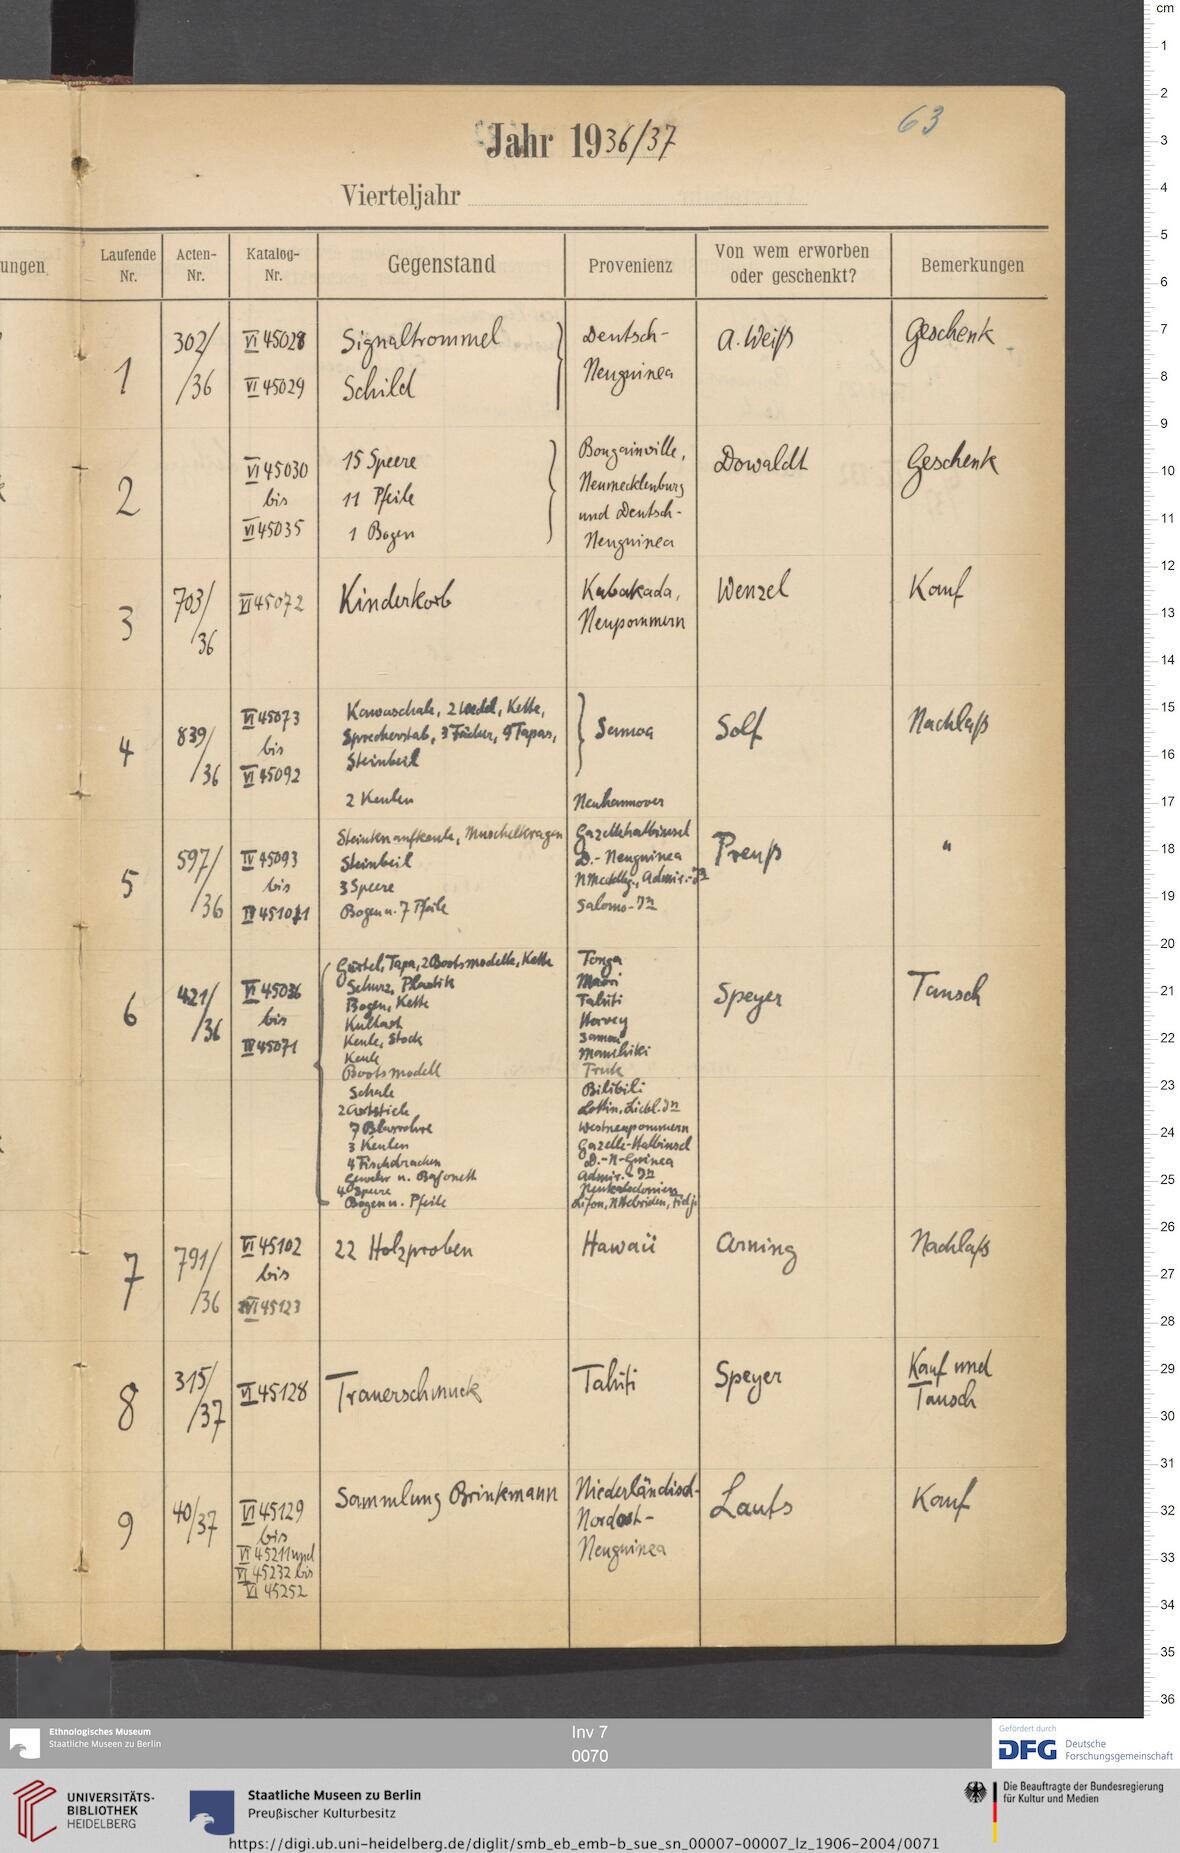 63
Jahr 1936/37
Vierteljahr
ungen
Laufende Nr.
Acten-Nr.
Katalog-Nr.
Gegenstand
Provenienz
Von wem erworben oder geschenkt?
Bemerkungen
1
302/
/36
VI 45028
VI 45029
Signaltrommel
Schild
Deutsch-
Neuguinea
A. Weiß
Geschenk
2
VI 45030
bis
VI 45035
15 Speere
11 Pfeile
1 Bogen
Bougainville,
Neumecklenburg
und Deutsch-
Neuguinea
Dowaldt
Geschenk
3
703/
/36
VI 45072
Kinderkorb
Kabakada,
Neupommern
Wenzel
Kauf
4
839/
/36
VI 45073
bis
VI 45092
Kawaschale, 2 Wedel, Kette,
Sprecherstab, 3 Fächer, 9 Tapas,
Steinbeil
2 Keulen
Samoa
Neuhannover
Solf
Nachlaß
5
597/
/36
IV 45093
bis
VI 45101
Steinknaufkeule, Muschelkragen
Steinbeil
3 Speere
Bogen u. 7 Pfeile
Gazellehalbinsel
D.-Neuguinea
NMecklbg., Admir.-Jn
Salomo-Jn
Preuß
"
6
421/
/36
VI 45036
bis
VI 45071
Gürtel, Tapa, 2 Bootsmodelle, Kette
Schurz, Plastik
Bogen, Kette
Kultaxt
Keule, Stock
Keule
Bootsmodell
Schale
2 Axtstiele
7 Blasrohre
3 Keulen
4 Fischdrachen
Gewehr u. Bajonett
4 Speere
Bogen u. Pfeile
Tonga
Maori
Tahiti
Hervey
Samoa
Manihiki
Truk
Bilibili
Lottin, Liebl. Jn
Westneupommern
Gazelle-Halbinsel
D.-N-Guinea
Admir.-Jn
Neukaledonien
Lifou, NHebriden, Fidji
Speyer
Tausch
7
791/
/36
VI 45102
bis
VI 45123
22 Holzproben
Hawaii
Arning
Nachlaß
8
315/
/37
VI 45128
Trauerschmuck
Tahiti
Speyer
Kauf und
Tausch
9
40/37
VI 45129
bis
VI 45211 und
VI 45232 bis
VI 45252
Sammlung Brinkmann
Niederländisch-
Nordost-
Neuguinea
Lauts
Kauf
cm
1
2
3
4
5
6
7
8
9
10
11
12
13
14
15
16
17
18
19
20
21
22
23
24
25
26
27
28
29
30
31
32
33
34
35
36
Ethnologisches Museum
Staatliche Museen zu Berlin
Inv 7
0070
Gefördert durch
DFG Deutsche
Forschungsgemeinschaft
UNIVERSITÄTS-
BIBLIOTHEK
HEIDELBERG
Staatliche Museen zu Berlin
Preußischer Kulturbesitz
Die Beauftragte der Bundesregierung
für Kultur und Medien
https://digi.ub.uni-heidelberg.de/diglit/smb_eb_emb-b_sue_sn_00007-00007_lz_1906-2004/0071